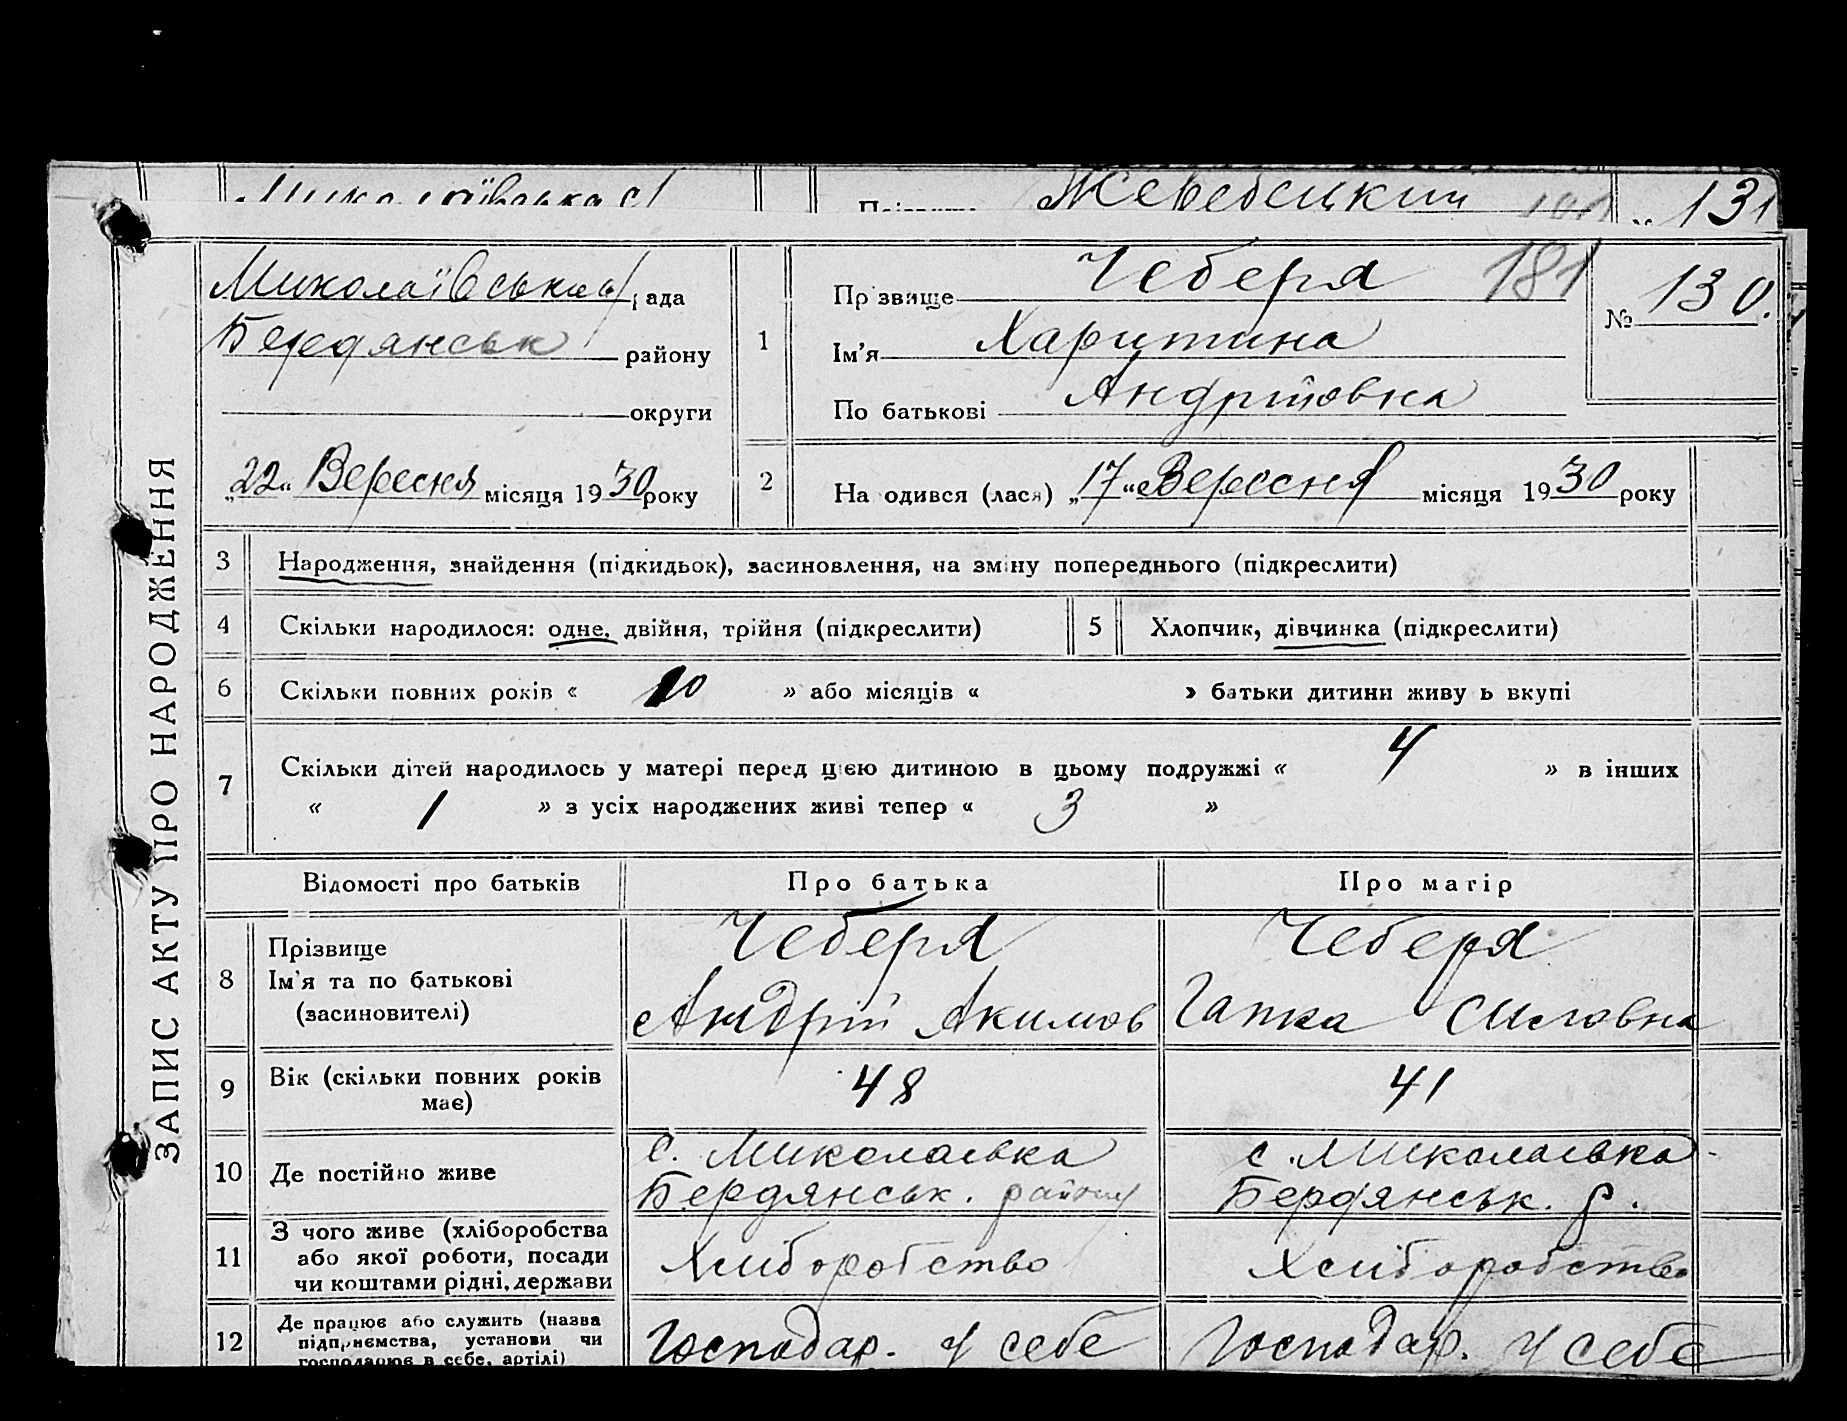 Жеребецкий
№ 131
ЗАПИС АКТУ ПРО НАРОДЖЕННЯ
Миколаївська с/рада
Бердянськ району
округи
„22“ Вересня місяця 1930 року
1
Прізвище Чеберя 181
Ім'я Харитина
По батькові Андріїовна
№ 130.
2
Народився (лася) „17“ Вересня місяця 1930 року
3 Народження, знайдення (підкидьок), засиновлення, на зміну попереднього (підкреслити)
4 Скільки народилося: одне, двійня, трійня (підкреслити)
5 Хлопчик, дівчинка (підкреслити)
6 Скільки повних років « 20 » або місяців « » батьки дитини живуть вкупі
7 Скільки дітей народилось у матері перед цією дитиною в цьому подружжі « 4 » в інших
« 1 » з усіх народжених живі тепер « 3 »
Відомості про батьків Про батька Про матір
8 Прізвище
Ім'я та по батькові
(засновителі)
Чеберя
Андрій Акимов
Чеберя
Гапка Силовна
9 Вік (скільки повних років
має)
48
41
10 Де постійно живе
с. Миколаєвка
Бердянськ. району
с. Миколаєвка
Бердянськ. р.
11 З чого живе (хліборобства
або якої роботи, посади
чи коштами рідні, держави
Хліборобство
Хліборобство
12 Де працює або служить (назва
підприємства, установи чи
господарює в себе, артілі)
Господар. у себе
Господар. у себе